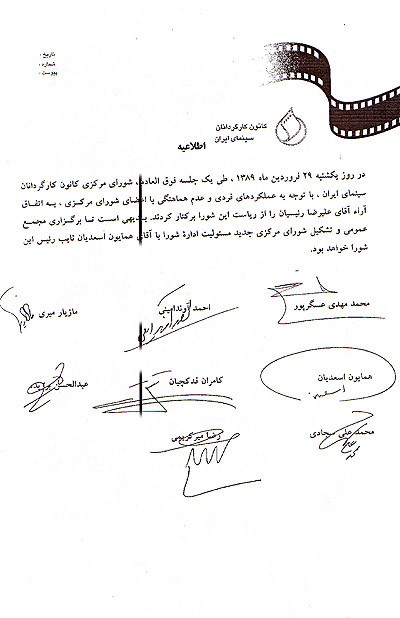 تاریخ :
شماره :
پیوست :
کانون کارگردانان
سینمای ایران
اطلاعیه
در روز یکشنبه ۲۹ فروردین ماه ۱۳۸۹ ، طی یک جلسه فوق العاده، شورای مرکزی کانون کارگردانان
سینمای ایران ، با توجه به عملکردهای فردی و عدم هماهنگی با اعضای شورای مرکزی ، به اتفاق
آراء آقای علیرضا رئیسیان را از ریاست این شورا برکنار کردند. بدیهی است تا برگزاری مجمع
عمومی و تشکیل شورای مرکزی جدید مسئولیت ادارهٔ شورا با آقای همایون اسعدیان نایب رئیس این
شورا خواهد بود.
محمد مهدی عسگرپور احمد مازیار میری
همایون اسعدیان کامران قدکچیان عبدالحسن
محمد علی سجادی رضا میرکریمی